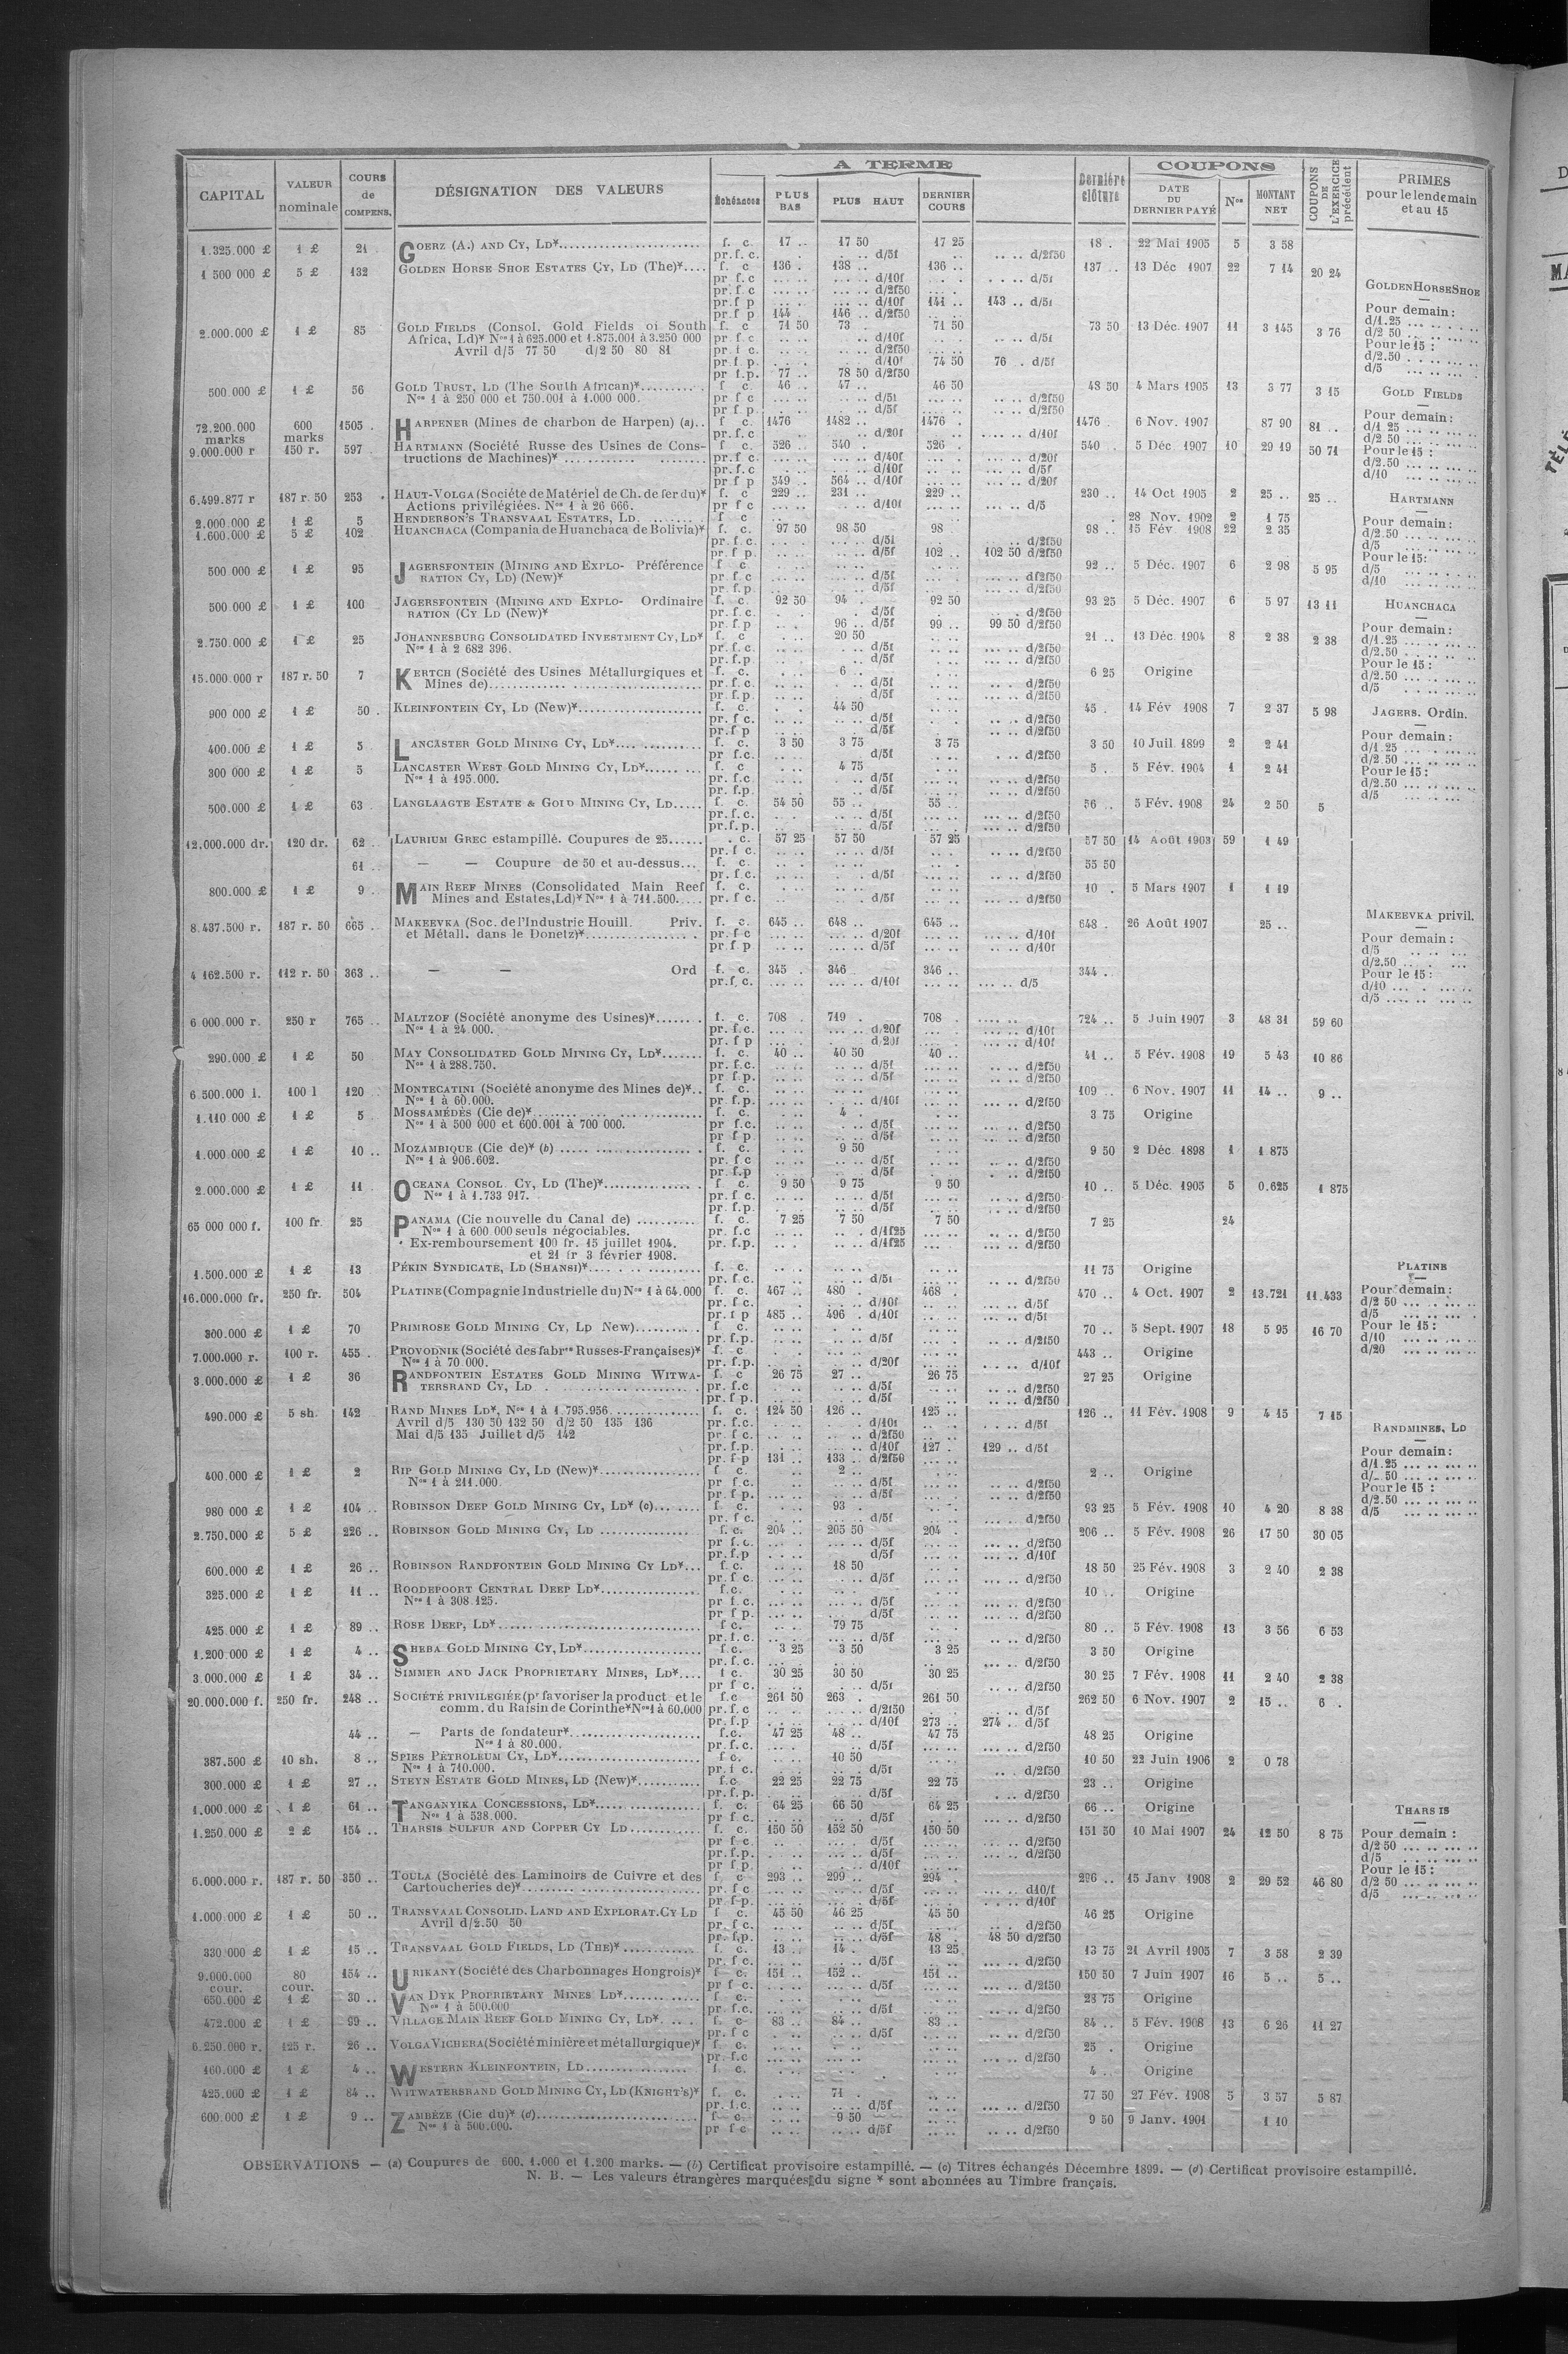 A TERME
COUPONS
CAPITAL
VALEUR nominale
COURS de COMPENS.
DÉSIGNATION DES VALEURS
Échéances
PLUS BAS
PLUS HAUT
DERNIER COURS
Dernière clôture
DATE DU DERNIER PAYÉ
Nos
MONTANT NET
COUPONS DE L'EXERCICE précédent
PRIMES pour le lendemain et au 15
1.325.000 £ 1 £ 21 GOERZ (A.) AND CY, LD* f. c. 17 .. 17 50 17 25 18 . 22 Mai 1905 5 3 58
pr. f. c. d/5f d/2f50
1 500 000 £ 5 £ 132 GOLDEN HORSE SHOE ESTATES CY, LD (The)* f. c 136 . 138 .. 136 .. 137 .. 13 Déc 1907 22 7 14 20 24
pr f. c d/10f d/5f
pr. f c d/2f50
pr. f p d/10f 141 .. 143 .. d/5f
pr.f p 144 . 146 .. d/2f50
2.000.000 £ 1 £ 85 GOLD FIELDS (Consol. Gold Fields of South f. c 71 50 73 . 71 50 73 50 13 Déc. 1907 11 3 145 3 76
Africa, Ld)* Nos 1 à 625.000 et 1.875.001 à 3.250 000 pr. f c d/10f d/5f
Avril d/5 77 50 d/2 50 80 81 pr. f c. d/2f50
pr. f. p. d/10f 74 50 76 . d/5f
pr f.p. 77 .. 78 50 d/2f50
500 000 £ 1 £ 56 GOLD TRUST, LD (The South African)* f c. 46 .. 47 .. 46 50 48 50 4 Mars 1905 13 3 77 3 15
Nos 1 à 250 000 et 750.001 à 1.000 000. pr f c d/5f d/2f50
pr f p. d/5f d/2f50
72.200.000 marks 600 marks 1505 . HARPENER (Mines de charbon de Harpen) (a).. f c. 1476 1482 .. 1476 . 1476 . 6 Nov. 1907 87 90 81 ..
pr. f. c d/20f d/10f
9.000.000 r 150 r. 597 HARTMANN (Société Russe des Usines de Cons- f c. 526 .. 540 . 526 . 540 . 5 Déc 1907 10 29 19 50 71
tructions de Machines)* pr. f c. d/40f d/20f
pr. f. c d/10f d/5f
pr f p 549 .. 564 .. d/10f d/20f
6.499.877 r 187 r. 50 253 HAUT-VOLGA (Société de Matériel de Ch. de fer du)* f. c 229 .. 231 .. 229 .. 230 .. 14 Oct 1905 2 25 .. 25 ..
Actions privilégiées. Nos 1 à 26 666. pr f c d/10f d/5
2.000 000 £ 1 £ 5 HENDERSON'S TRANSVAAL ESTATES, LD. f c 28 Nov. 1902 2 1 75
1.600.000 £ 5 £ 102 HUANCHACA (Compania de Huanchaca de Bolivia)* f. c. 97 50 98 50 98 . 98 .. 15 Fév. 1908 22 2 35
pr. f. c. d/5f d/2f50
pr. f p. d/5f 102 .. 102 50 d/2f50
500 000 £ 1 £ 95 JAGERSFONTEIN (MINING AND EXPLO- Préférence f c 92 .. 5 Déc. 1907 6 2 98 5 95
RATION CY, LD) (New)* pr. f c d/5f d/2f50
pr. f.p. d/5f d/2f50
500 000 £ 1 £ 100 JAGERSFONTEIN (MINING AND EXPLO- Ordinaire f. c. 92 50 94 . 92 50 93 25 5 Déc. 1907 6 5 97 13 11
RATION (CY LD (New)* pr. f. c. d/5f d/2f50
pr. f p 96 .. d/5f 99 .. 99 50 d/2f50
2.750.000 £ 1 £ 25 JOHANNESBURG CONSOLIDATED INVESTMENT CY, LD* f. c 20 50 21 .. 13 Déc 1904 8 2 38 2 38
Nos 1 à 2 682 396. pr. f. c. d/5f d/2f50
pr. f.p. d/5f d/2f50
15.000.000 r 187 r. 50 7 KERTCH (Société des Usines Métallurgiques et f. c. 6 .. 6 25 Origine
Mines de) pr. f. c. d/5f d/2f50
pr. f.p. d/5f d/2f50
900 000 £ 1 £ 50 . KLEINFONTEIN CY, LD (New)* f. c. 44 50 45 . 14 Fév 1908 7 2 37 5 98
pr. f c. d/5f d/2f50
pr. f p d/5f d/2f50
400.000 £ 1 £ 5 LANCASTER GOLD MINING CY, LD* f. c. 3 50 3 75 3 75 3 50 10 Juil 1899 2 2 41
pr f.c. d/5f d/2f50
300 000 £ 1 £ 5 LANCASTER WEST GOLD MINING CY, LD* f. c 4 75 5 . 5 Fév. 1904 1 2 41
Nos 1 à 195.000. pr. f.c. d/5f d/2f50
pr. f.p. d/5f d/2f50
500.000 £ 1 £ 63 LANGLAAGTE ESTATE & GOLD MINING CY, LD f. c. 54 50 55 .. 55 .. 56 .. 5 Fév. 1908 24 2 50 5
pr. f. c. d/5f d/2f50
pr. f. p. d/5f d/2f50
12.000.000 dr. 120 dr. 62 LAURIUM GREC estampillé. Coupures de 25 . c. 57 25 57 50 57 25 57 50 14 Août 1903 59 1 49
pr. f c. d/5f d/2f50
61 .. — — Coupure de 50 et au-dessus... f. c. 55 50
pr. f. c. d/5f d/2f50
800.000 £ 1 £ 9 . MAIN REEF MINES (Consolidated Main Reef f. c. 10 . 5 Mars 1907 1 1 19
Mines and Estates, Ld)* Nos 1 à 711.500. pr. f c. d/5f d/2f50
8.437.500 r. 187 r. 50 665 .. MAKEEVKA (Soc. de l'Industrie Houill. Priv. f. c. 645 .. 648 .. 645 .. 648 . 26 Août 1907 25 ..
et Métall. dans le Donetz)* pr. f c d/20f d/10f
pr. f p d/5f d/10f
4 162.500 r. 112 r. 50 363 .. — — Ord f. c. 345 . 346 . 346 .. 344 ..
pr. f. c. d/10f d/5
6 000.000 r. 250 r 765 .. MALTZOF (Société anonyme des Usines)* f. c. 708 . 719 . 708 . 724 .. 5 Juin 1907 3 48 31 59 60
Nos 1 à 24 000. pr. f.c. d/20f d/10f
pr. f p d/20f d/10f
290.000 £ 1 £ 50 MAY CONSOLIDATED GOLD MINING CY, LD* f. c. 40 .. 40 50 40 .. 41 .. 5 Fév. 1908 19 5 43 10 86
Nos 1 à 288.750. pr. f.c. d/5f d/2f50
pr f.p. d/5f d/2f50
6 500.000 l. 100 l 120 MONTECATINI (Société anonyme des Mines de)*.. f. c. 109 .. 6 Nov. 1907 11 14 .. 9 ..
Nos 1 à 60.000. pr. f.p. d/10f d/2f50
1.110 000 £ 1 £ 5 MOSSAMÉDÈS (Cie de)* f. c. 4 . 3 75 Origine
Nos 1 à 500 000 et 600.001 à 700 000. pr f.c. d/5f d/2f50
pr f p. d/5f d/2f50
1.000.000 £ 1 £ 10 .. MOZAMBIQUE (Cie de)* (b) f. c. 9 50 9 50 2 Déc 1898 1 1 875
Nos 1 à 906.602. pr. f c d/5f d/2f50
pr. f.p d/5f d/2f50
2.000.000 £ 1 £ 11 OCEANA CONSOL. CY, LD (The)* f c. 9 50 9 75 9 50 10 .. 5 Déc. 1905 5 0.625 1 875
Nos 1 à 1.733 917. pr. f c. d/5f d/2f50
pr. f.p. d/5f d/2f50
65 000 000 f. 100 fr. 25 PANAMA (Cie nouvelle du Canal de) f. c. 7 25 7 50 7 50 7 25 24
Nos 1 à 600 000 seuls négociables. pr. f.c d/1f25 d/2f50
Ex-remboursement 100 fr. 15 juillet 1904. pr. f.p. d/1f25 d/2f50
et 21 fr 3 février 1908.
1.500.000 £ 1 £ 13 PÉKIN SYNDICATE, LD (SHANSI)* f. c. 11 75 Origine
pr. f c. d/5f d/2f50
16.000.000 fr. 250 fr. 504 PLATINE (Compagnie Industrielle du) Nos 1 à 64.000 f. c. 467 .. 480 . 468 . 470 .. 4 Oct. 1907 2 13.721 11.433
pr. f c. d/10f d/5f
pr. f p 485 .. 496 . d/10f d/5f
300.000 £ 1 £ 70 PRIMROSE GOLD MINING CY, LD New) f c. 70 .. 5 Sept. 1907 18 5 95 16 70
pr. f.p. d/5f d/2f50
7.000.000 r. 100 r. 455 . PROVODNIK (Société des fabres Russes-Françaises)* f. c 443 .. Origine
Nos 1 à 70 000. pr. f.p. d/20f d/10f
3.000.000 £ 1 £ 36 RANDFONTEIN ESTATES GOLD MINING WITWA- f. c 26 75 27 .. 26 75 27 25 Origine
TERSRAND CY, LD pr. f.c d/5f d/2f50
pr. f p. d/5f d/2f50
490.000 £ 5 sh. 142 RAND MINES LD*, Nos 1 à 1.795.956 f. c. 124 50 126 .. 125 .. 126 .. 11 Fév. 1908 9 4 15 7 15
Avril d/5 130 50 132 50 d/2 50 135 136 pr. f.c. d/10f d/5f
Mai d/5 135 Juillet d/5 142 pr f c. d/2f50
pr. f.p. d/10f 127 . 129 .. d/5f
pr. f-p 131 .. 133 .. d/2f50
400.000 £ 1 £ 2 RIP GOLD MINING CY, LD (New)* f c. 2 .. 2 .. Origine
Nos 1 à 211.000. pr f c. d/5f d/2f50
pr f.p. d/5f d/2f50
980 000 £ 1 £ 104 .. ROBINSON DEEP GOLD MINING CY, LD* (c) f c. 93 . 93 25 5 Fév. 1908 10 4 20 8 38
pr. f c. d/5f d/2f50
2.750.000 £ 5 £ 226 .. ROBINSON GOLD MINING CY, LD f. c. 204 .. 205 50 204 . 206 .. 5 Fév. 1908 26 17 50 30 05
pr f. c. d/5f d/2f50
pr. f.p d/5f d/10f
600.000 £ 1 £ 26 .. ROBINSON RANDFONTEIN GOLD MINING CY LD* f. c. 18 50 18 50 25 Fév. 1908 3 2 40 2 38
pr. f c. d/5f d/2f50
325.000 £ 1 £ 11 .. ROODEPOORT CENTRAL DEEP LD* f.c. 10 .. Origine
Nos 1 à 308.125. pr f.c. d/5f d/2f50
pr f p. d/5f d/2f50
425.000 £ 1 £ 89 .. ROSE DEEP, LD* f c. 79 75 80 .. 5 Fév. 1908 13 3 56 6 53
pr. f. c. d/5f d/2f50
1.200 000 £ 1 £ 4 .. SHEBA GOLD MINING CY, LD* f.c. 3 25 3 50 3 25 3 50 Origine
pr. f. c. d/2f50
3.000.000 £ 1 £ 34 .. SIMMER AND JACK PROPRIETARY MINES, LD* f c. 30 25 30 50 30 25 30 25 7 Fév. 1908 11 2 40 2 38
pr f c. d/5f d/2f50
20.000.000 f. 250 fr. 248 .. SOCIÉTÉ PRIVILEGIÉE (pr favoriser la product et le f.c 261 50 263 . 261 50 262 50 6 Nov. 1907 2 15 .. 6 .
comm. du Raisin de Corinthe* Nos 1 à 60.000 pr. f.c d/2f50 d/5f
pr. f.p d/10f 273 .. 274 . d/5f
44 .. — Parts de fondateur* f.c. 47 25 48 .. 47 75 48 25 Origine
Nos 1 à 80.000. pr. f.c. d/5f d/2f50
387.500 £ 10 sh. 8 .. SPIES PETROLEUM CY, LD* f c. 10 50 10 50 22 Juin 1906 2 0 78
Nos 1 à 710.000. pr. f c. d/5f d/2f50
300.000 £ 1 £ 27 .. STEYN ESTATE GOLD MINES, LD (New)* f.c 22 25 22 75 22 75 23 .. Origine
pr. f. p. d/5f d/2f50
1.000.000 £ 1 £ 61 .. TANGANYIKA CONCESSIONS, LD* f. c. 64 25 66 50 64 25 66 .. Origine
Nos 1 à 538.000. pr f c. d/5f d/2f50
1.250.000 £ 2 £ 154 .. THARSIS SULFUR AND COPPER CY LD f. c. 150 50 152 50 150 50 151 50 10 Mai 1907 24 12 50 8 75
pr f c. d/5f d/2f50
pr. f.p. d/5f d/2f50
pr f p. d/10f
6.000.000 r. 187 r. 50 350 .. TOULA (Société des Laminoirs de Cuivre et des f c 293 .. 299 .. 294 . 296 .. 15 Janv 1908 2 29 52 46 80
Cartoucheries de)* pr f c d/5f d10/f
pr f-p. d/5f d/10f
1.000.000 £ 1 £ 50 .. TRANSVAAL CONSOLID. LAND AND EXPLORAT. CY LD f c. 45 50 46 25 45 50 46 25 Origine
Avril d/2.50 50 pr. f c. d/5f d/2f50
pr. f.p. d/5f 48 . 48 50 d/2f50
330 000 £ 1 £ 15 .. TRANSVAAL GOLD FIELDS, LD (THE)* f. c. 13 .. 14 . 13 25 13 75 21 Avril 1905 7 3 58 2 39
pr. f c. d/5f d/2f50
9.000.000 cour. 80 cour. 154 .. URIKANY (Société des Charbonnages Hongrois)* f c. 151 .. 152 .. 151 .. 150 50 7 Juin 1907 16 5 .. 5 ..
pr f c. d/5f d/2f50
650.000 £ 1 £ 30 .. VAN DYK PROPRIETARY MINES LD* f c. 23 75 Origine
Nos 1 à 500.000 pr. f.c. d/5f d/2f50
472.000 £ 1 £ 99 .. VILLAGE MAIN REEF GOLD MINING CY, LD* f. c 83 .. 84 .. 83 .. 84 .. 5 Fév. 1908 13 6 26 11 27
pr. f c d/5f d/2f50
6.250.000 r. 125 r. 26 .. VOLGA VICHERA (Société minière et métallurgique)* f. c. 25 . Origine
pr. f.c d/2f50
160.000 £ 1 £ 4 .. WESTERN KLEINFONTEIN, LD f. c. 4 .. Origine
425.000 £ 1 £ 84 .. WITWATERSRAND GOLD MINING CY, LD (KNIGHT'S)* f. c. 71 . 77 50 27 Fév. 1908 5 3 57 5 87
pr. f.c. d/5f d/2f50
600.000 £ 1 £ 9 .. ZAMBÈZE (Cie du)* (d) f c. 9 50 9 50 9 Janv. 1901 1 10
Nos 1 à 500.000. pr f c d/5f d/2f50
GOLDEN HORSE SHOE
Pour demain :
d/1.25
d/2 50
Pour le 15 :
d/2.50
d/5
GOLD FIELDS
Pour demain :
d/1 25
d/2 50
Pour le 15 :
d/2.50
d/10
HARTMANN
Pour demain :
d/2.50
d/5
Pour le 15 :
d/5
d/10
HUANCHACA
Pour demain :
d/1.25
d/2.50
Pour le 15 :
d/2.50
d/5
JAGERS. Ordin.
Pour demain :
d/1.25
d/2.50
Pour le 15 :
d/2.50
d/5
MAKEEVKA privil.
Pour demain :
d/5
d/2.50
Pour le 15 :
d/10
d/5
PLATINE
Pour demain :
d/2 50
d/5
Pour le 15 :
d/10
d/20
RANDMINES, LD
Pour demain :
d/1.25
d/ 50
Pour le 15 :
d/2.50
d/5
THARSIS
Pour demain :
d/2 50
d/5
Pour le 15 :
d/2 50
d/5
OBSERVATIONS — (a) Coupures de 600. 1.000 et 1.200 marks. — (b) Certificat provisoire estampillé. — (c) Titres échangés Décembre 1899. — (d) Certificat provisoire estampillé.
N. B. — Les valeurs étrangères marquées du signe * sont abonnées au Timbre français.